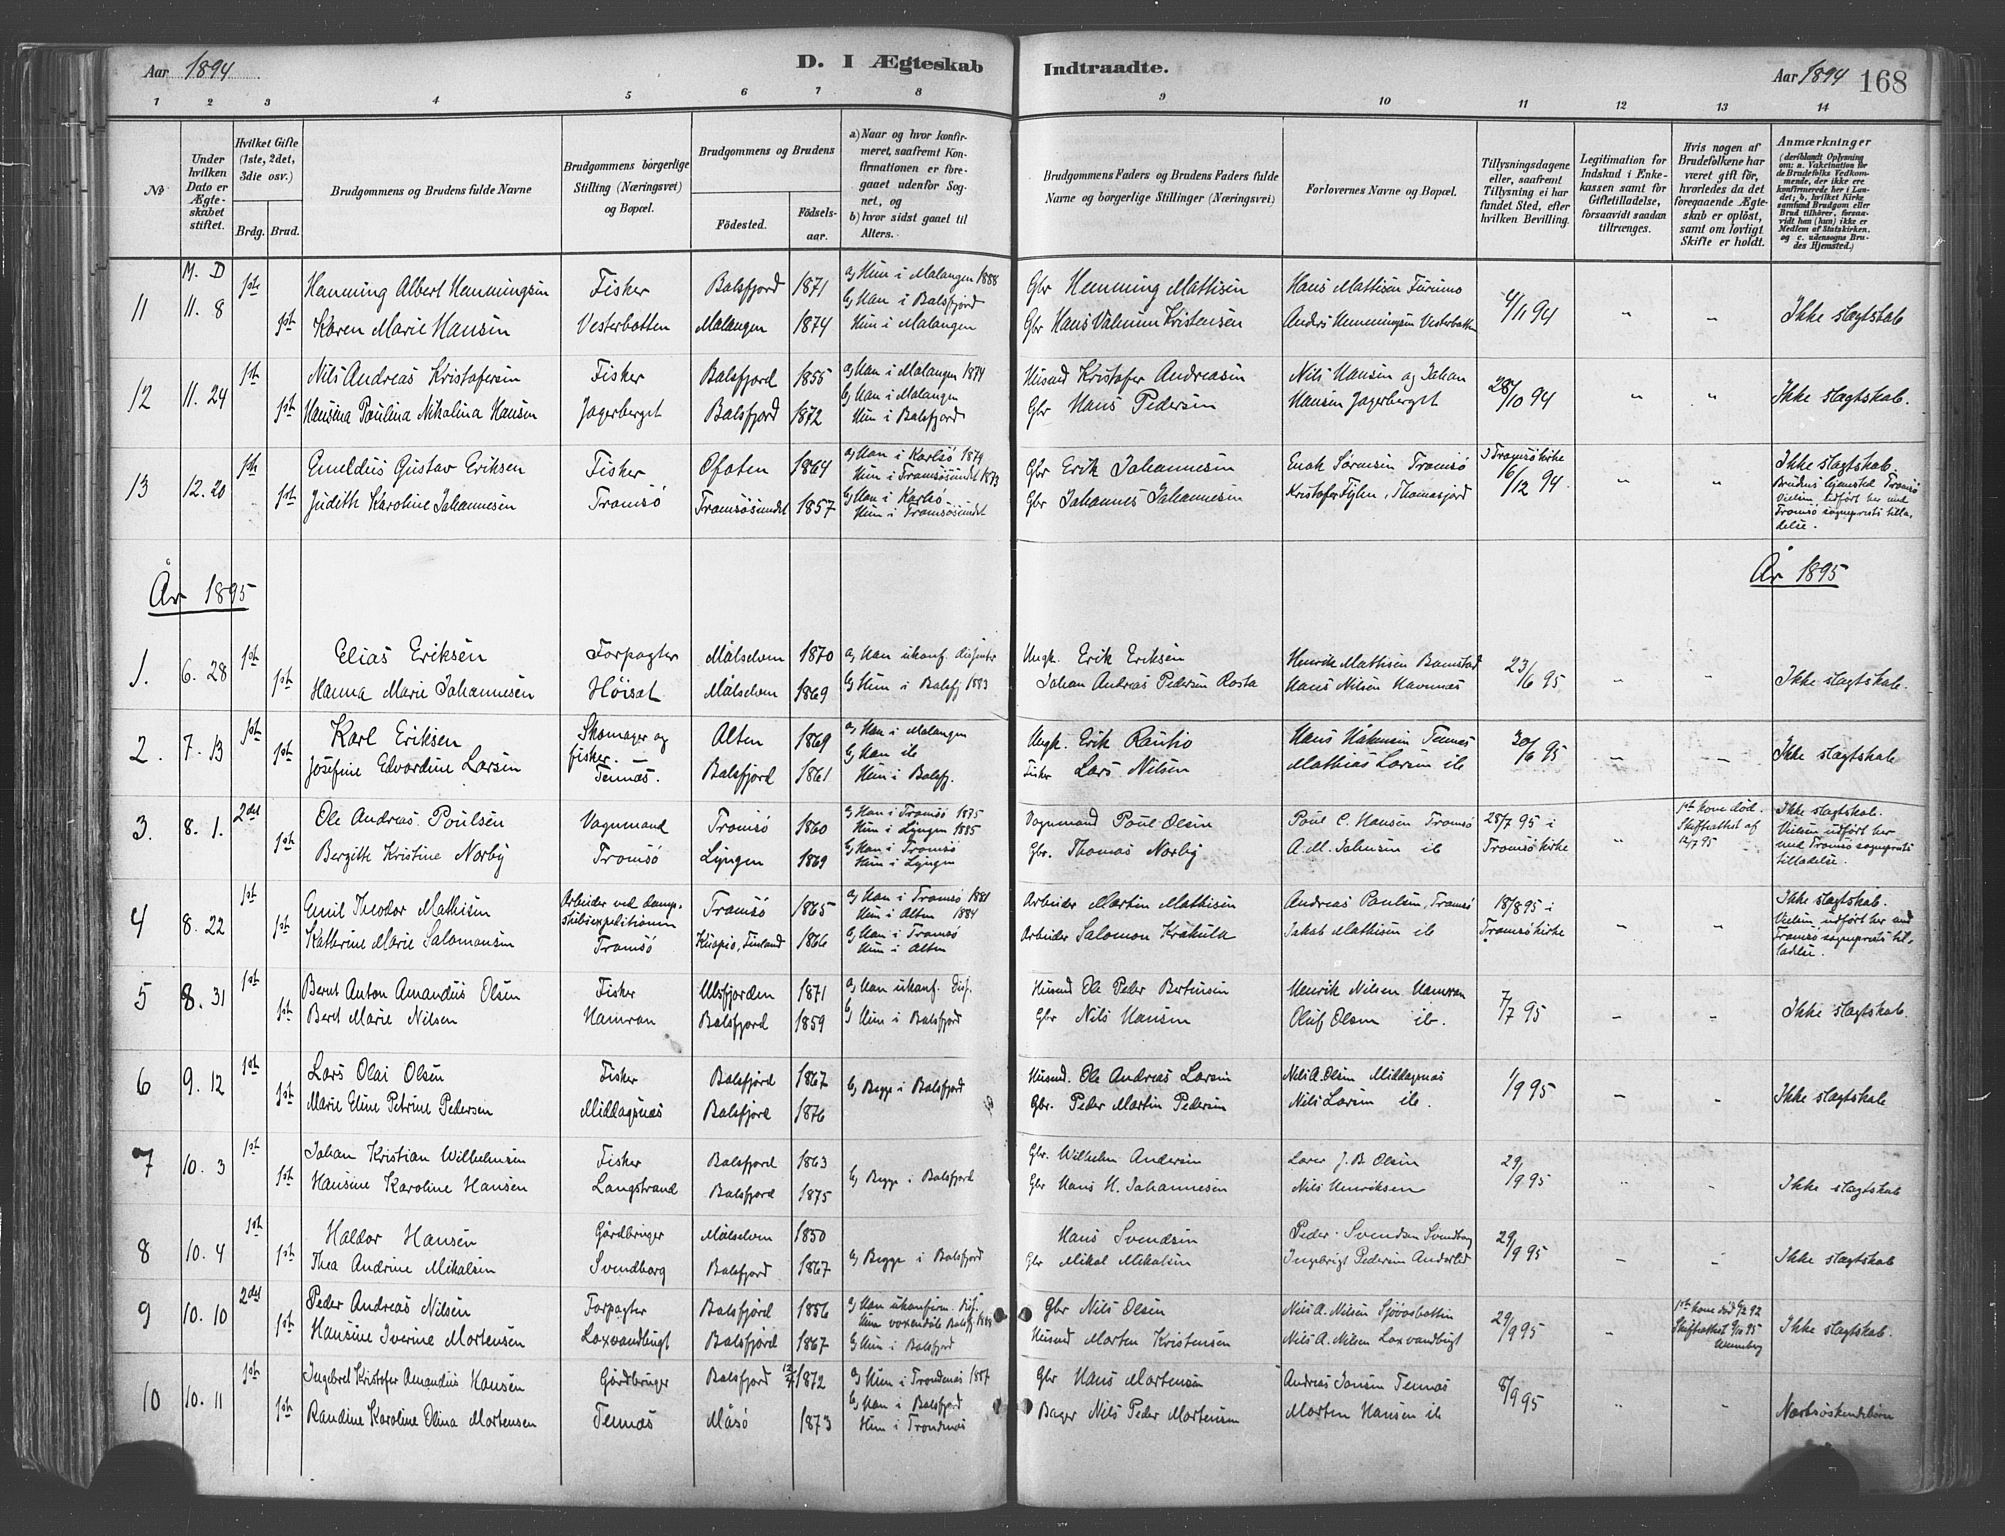 Aar 1894 D. I Ægteskab Indtraadte. Aar 1894 168
1 2 3 4 5 6 7 8 9 10 11 12 13 14
No
Under hvilken Dato er Ægteskabet stiftet.
Hvilket Gifte (1ste, 2det, 3die osv.)
Brdg. Brud.
Brudgommens og Brudens fulde Navne
Brudgommens borgerlige Stilling (Næringsvei) og Bopæl.
Brudgommens og Brudens
Födested. Födselsaar.
a) Naar og hvor konfirmeret, saafremt Konfirmationen er foregaaet udenfor Sognet, og
b) hvor sidst gaaet til Alters.
Brudgommens Faders og Brudens Faders fulde Navne og borgerlige Stillinger (Næringsvei)
Forlovernes Navne og Bopæl.
Tillysningsdagene eller, saafremt Tillysning ei har fundet Sted, efter hvilken Bevilling.
Legitimation for Indskud i Enkekassen samt for Giftetilladelse, forsaavidt saadan tiltrænges.
Hvis nogen af Brudefolkene har været gift før, hvorledes da det foregaaende Ægteskab er opløst, samt om lovligt Skifte er holdt.
Anmærkninger
(deriblandt Oplysning om: a. Vakcination for de Brudefolks Vedkommende, der ikke ere konfirmerede her i Landet; b. hvilket Kirkesamfund Brudgom eller Brud tilhører, forsaavidt han (hun) ikke er Medlem af Statskirken, og c. udensogns Brudes Hjemsted.)
M. D
11 11. 8 1ste Henning Albert Henningsen Fisker Balsfjord 1871 a) Hun i Malangen 1888 b) Han i Balsfjord Gbr Henning Mattisen Hans Mattisen Furumo 4/11 94 " " Ikke slægtskab
1st Karen Marie Hansen Vesterbotten Malangen 1874 Hun i Malangen Gbr Hans Valnum Kristensen Anders Henningsen Vesterbotten
12 11. 24 1st Nils Andreas Kristofersen Fisker Balsfjord 1855 a) Han i Malangen 1874 b) Han i Malangen Husmd Kristofer Andreasen Nils Hansen og Johan 28/10 94 " " Ikke slægtskab.
1st Hansina Paulina Nikolina Hansen Jagerberget Balsfjord 1872 Hun i Balsfjord Gbr Hans Pedersen Hansen Jagerberget
13 12. 20 1ste Emeldus Gustav Eriksen Fisker Ofoten 1864 a) Han i Karlsö 1879 Hun i Tromsösundet 1873 Gbr Erik Johannesen Enok Sörensen Tromsö I Tromsökirke 16/12 94. " " Ikke slægtskab
1st Judith Karoline Johannesen Tromsö Tromsösundet 1857 b) Han i Karlsö. Hun i Tromsösundet Gbr Johannes Johannesen Kristofer , Thomasjord Brudens hjemsted Tromsö Vielsen udført her med Tromsö sogneprests tilladelse.
År 1895 År 1895
1. 6. 28 1st Elias Eriksen Forpagter Målselven 1870 a) Han ukonf. disſenter Ungk. Erik Eriksen Henrik Mattisen 23/6 95 " " Ikke slægtskab.
1st Hanna Marie Johannesen Höiset Målselven 1869 b) Hun i Balsfj 1893 Johan Andreas Pedersen Rosta Hans Nilsen Havnnæs
2. 7. 13 1st Karl Eriksen Skomager og fisker. Alten 1869 a) Han i Malangen b) Han ib Ungk. Erik Rautio Hans Håkensen Tennæs 30/6 95 " " Ikke slægtskab
1st Josefine Edvardine Larsen Tennæs. Balsfjord 1861 Hun i Balsfj. Fisker Lars Nilsen Mathias Larsen ib
3. 8. 1. 2det Ole Andreas Poulsen Vognmand Tromsö 1860 a) Han i Tromsö 1875 Hun i Lyngen 1885 Vognmand Poul Olsen Poul C. Hansen Tromsö 28/7 95 i Tromsökirke " 1st kone död. Skifteattest af 12/7 95 Ikke slægtskab.
1st Bergith Kristine Norby Tromsö Lyngen 1869 b) Han i Tromsö Hun i Lyngen Gbr. Thomas Norby A. M. Johnsen ib Vielsen udført her med Tromsö sogneprests tilladelse.
4 8. 22 1st Emil Theodor Mathisen Arbeider ved dampskibsexpeditionen Tromsö 1865 a) Han i Tromsö 1881 Hun i Alten 1884 Arbeider Martin Mathisen Andreas Paulsen, Tromsö 18/8 95 i Tromsökirke " " Ikke slægtskab.
1st Kathrine Marie Salomonsen Tromsö Kuopio, Finland 1866 b) Han i Tromsö Hun i Alten Arbeider Salomon Kräkulä Jakob Mathisen ib Vielsen udført her med Tromsö sogneprests tilladelse.
5 8. 31 1st Bernt Anton Amandus Olsen Fisker Ulsfjorden 1871 a) Han ukonf. disſ. Husmd Ole Peder Berntsen Henrik Nilsen Hamran 7/7 95 " " Ikke slægtskab.
1st Beret Marie Nilsen Hamran Balsfjord 1859 b) Hun i Balsfjord Gbr Nils Hansen Oluf Olsen ib.
6 9. 12 1st Lars Olai Olsen Fisker Balsfjord 1867 b) Begge i Balsfjord Husmd. Ole Andreas Larsen Nils A. Olsen Middagsnæs 1/9 95 " " Ikke slægtskab
1st Marie Eline Petrine Pedersen Middagsnæs Balsfjord 1876 Gbr. Peder Martin Pedersen Nils Larsen ib.
7 10. 3 1st Johan Kristian Wilhelmsen Fisker Balsfjord 1863 b) Begge i Balsfjord Gbr. Wilhelm Andersen Lærer J. B. Olsen 29/9 95 " " Ikke slægtskab
1st Hansine Karoline Hansen Langstrand Balsfjord 1875 Gbr Hans H. Johannesen Nils Henriksen
8 10. 4 1st Haldor Hansen Gårdbruger Målselven 1850 a) Begge i Balsfjord Hans Svendsen Peder Svendsen Svendborg 29/9 95 " " Ikke slægtskab
1st Thea Andrine Mikalsen Svendborg Balsfjord 1867 Gbr Mikal Mikalsen Ingebrigt Pedersen Andersdal
9 10. 10 2det Peder Andreas Nilsen Forpagter Balsfjord 1856 a) Han ukonfirm. disſ. Hun voxendöbt Balsfj. Gbr Nils Olsen Nils A. Nilsen Sjövasbotten 29/9 95 " 1st kone död 92 Skifteattest 95 Ikke slægtskab.
1st Hansine Iverine Mortensen Laxvandbugt Balsfjord 1867 b) Hun i Balsfjord Husmd Morten Kristensen Nils A. Nilsen Laxvandbugt
10 10. 11 1st Ingebret Kristofer Amandus Hansen Gårdbruger Balsfjord 1872 a) Hun i Trondenæs 1887 b) Han i Balsfjord Gbr Hans Mortensen Andreas Jensen Tennæs 8/9 95 " " Næstsöskendebörn
1st Randine Karoline Olina Mortensen Tennæs Måsö 1873 Hun i Trondenæs Bager Nils Peder Mortensen Morten Hansen ib